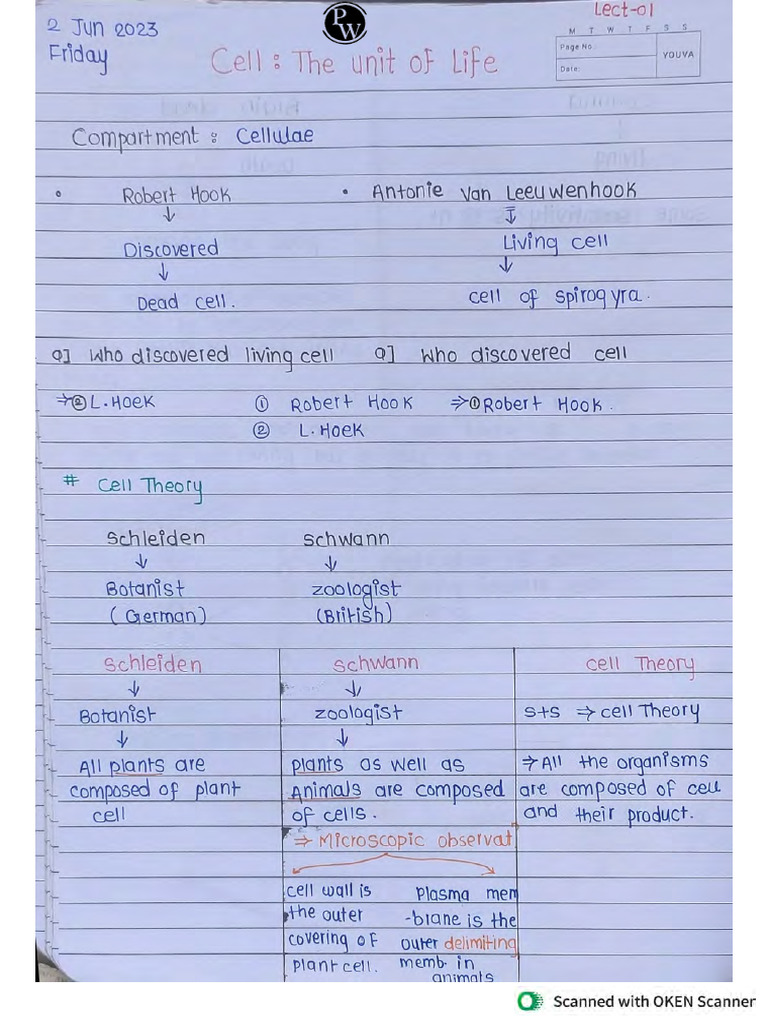 Lect-01
2 Jun 2023
Friday
PW
M T W T F S S
Page No.
Date:
YOUVA
Cell : The unit of Life
Compartment : Cellulae
• Robert Hook • Antonie van Leeuwenhook
↓ ↓
Discovered Living cell
↓ ↓
Dead cell. cell of spirogyra.
Q] Who discovered living cell Q] Who discovered cell
⇒② L.Hoek ① Robert Hook ⇒① Robert Hook.
② L.Hoek
# Cell Theory
Schleiden Schwann
↓ ↓
Botanist zoologist
(German) (British)
Schleiden
↓
Botanist
↓
All plants are
composed of plant
cell
Schwann
↓
zoologist
↓
plants as well as
Animals are composed
of cells.
⇒ Microscopic observat
cell wall is
the outer
covering of
plant cell.
Plasma mem
-brane is the
outer delimiting
memb. in
animals
cell Theory
S+S ⇒ cell Theory
⇒ All the organisms
are composed of cell
and their product.
Scanned with OKEN Scanner